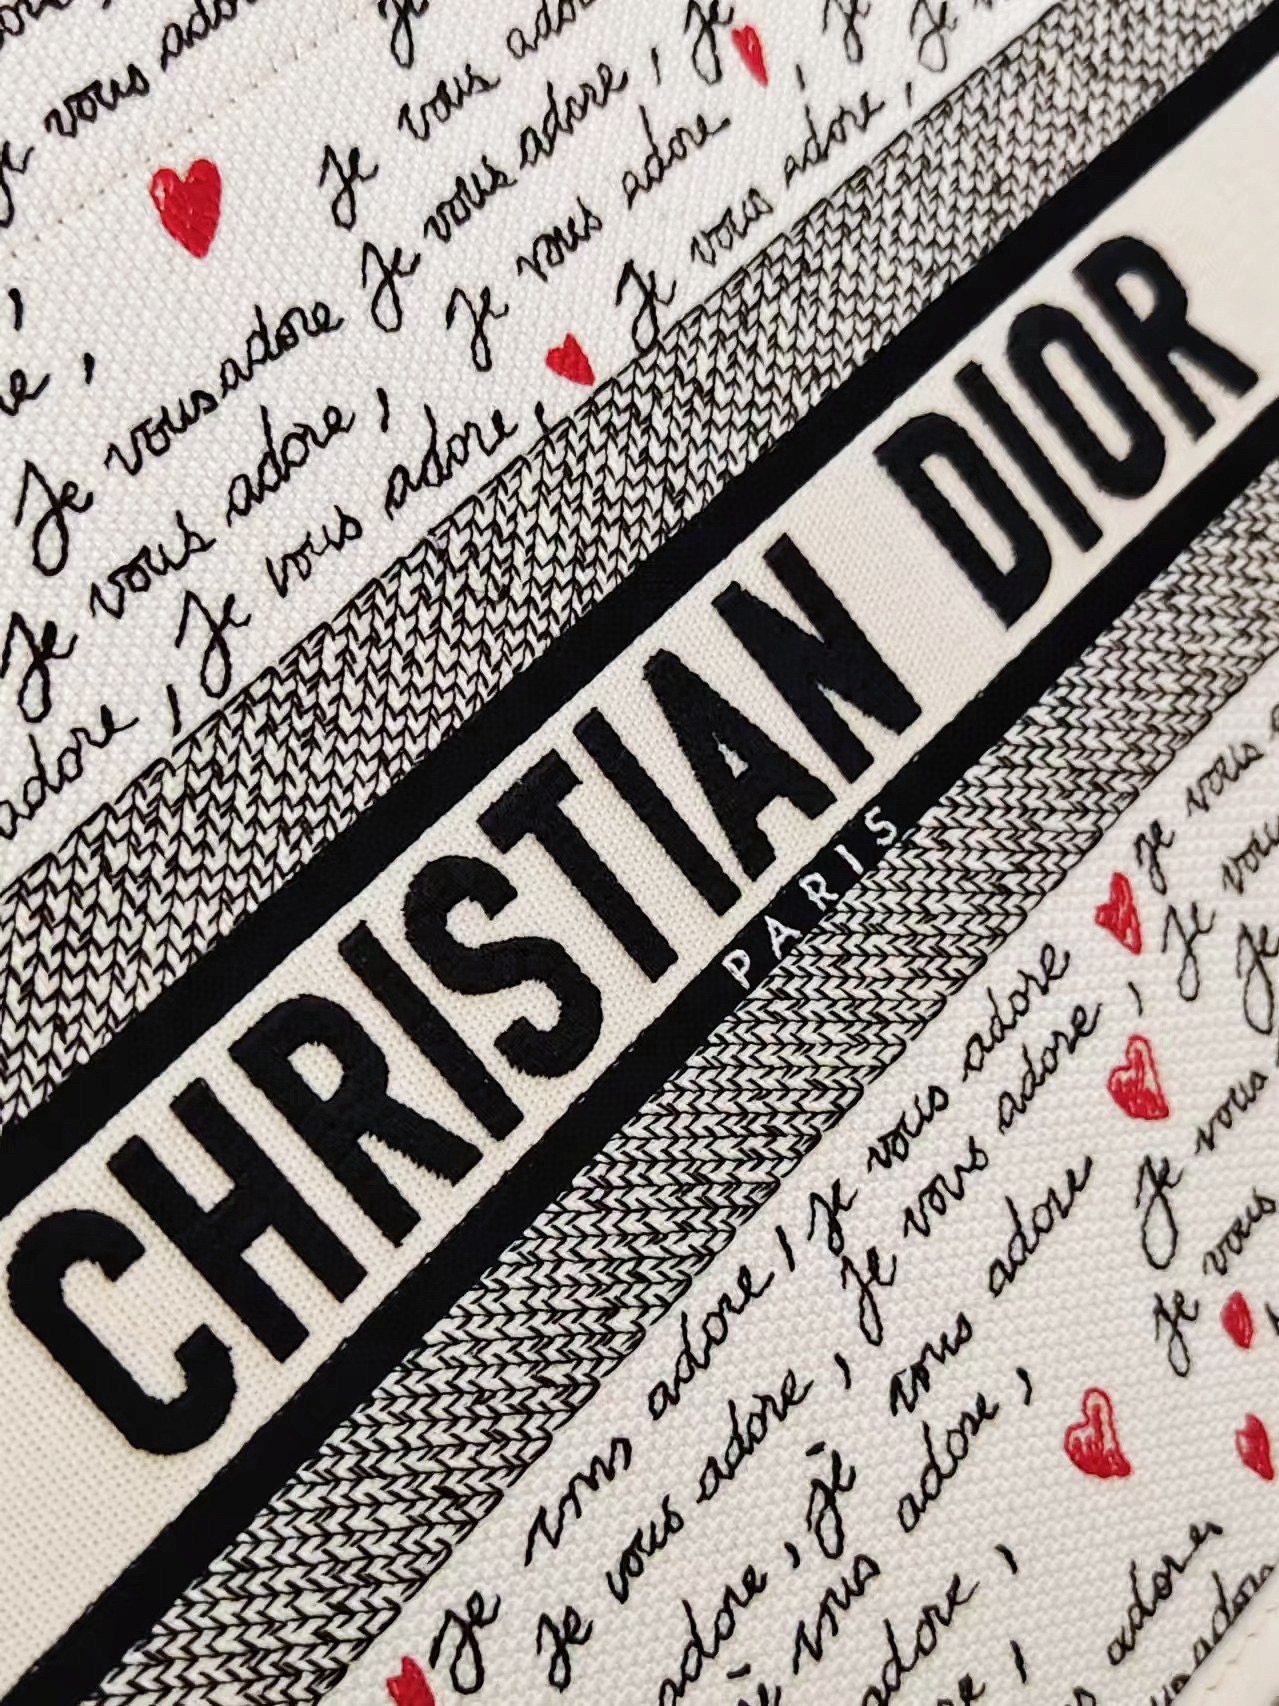 vous adore
Je vous adore
Je vous adore, Je
Je vous adore,
Je vous adore,
Je vous adore Je vous adore,
Je vous adore, Je vous adore
Je vous adore, Je vous adore,
adore, Je vous adore,
CHRISTIAN DIOR
PARIS
Je vous adore, Je vous adore Je vous
Je vous adore, Je vous adore, Je vous
adore, Je vous adore Je vous
Je vous adore, Je vous
adore,
adore
adore